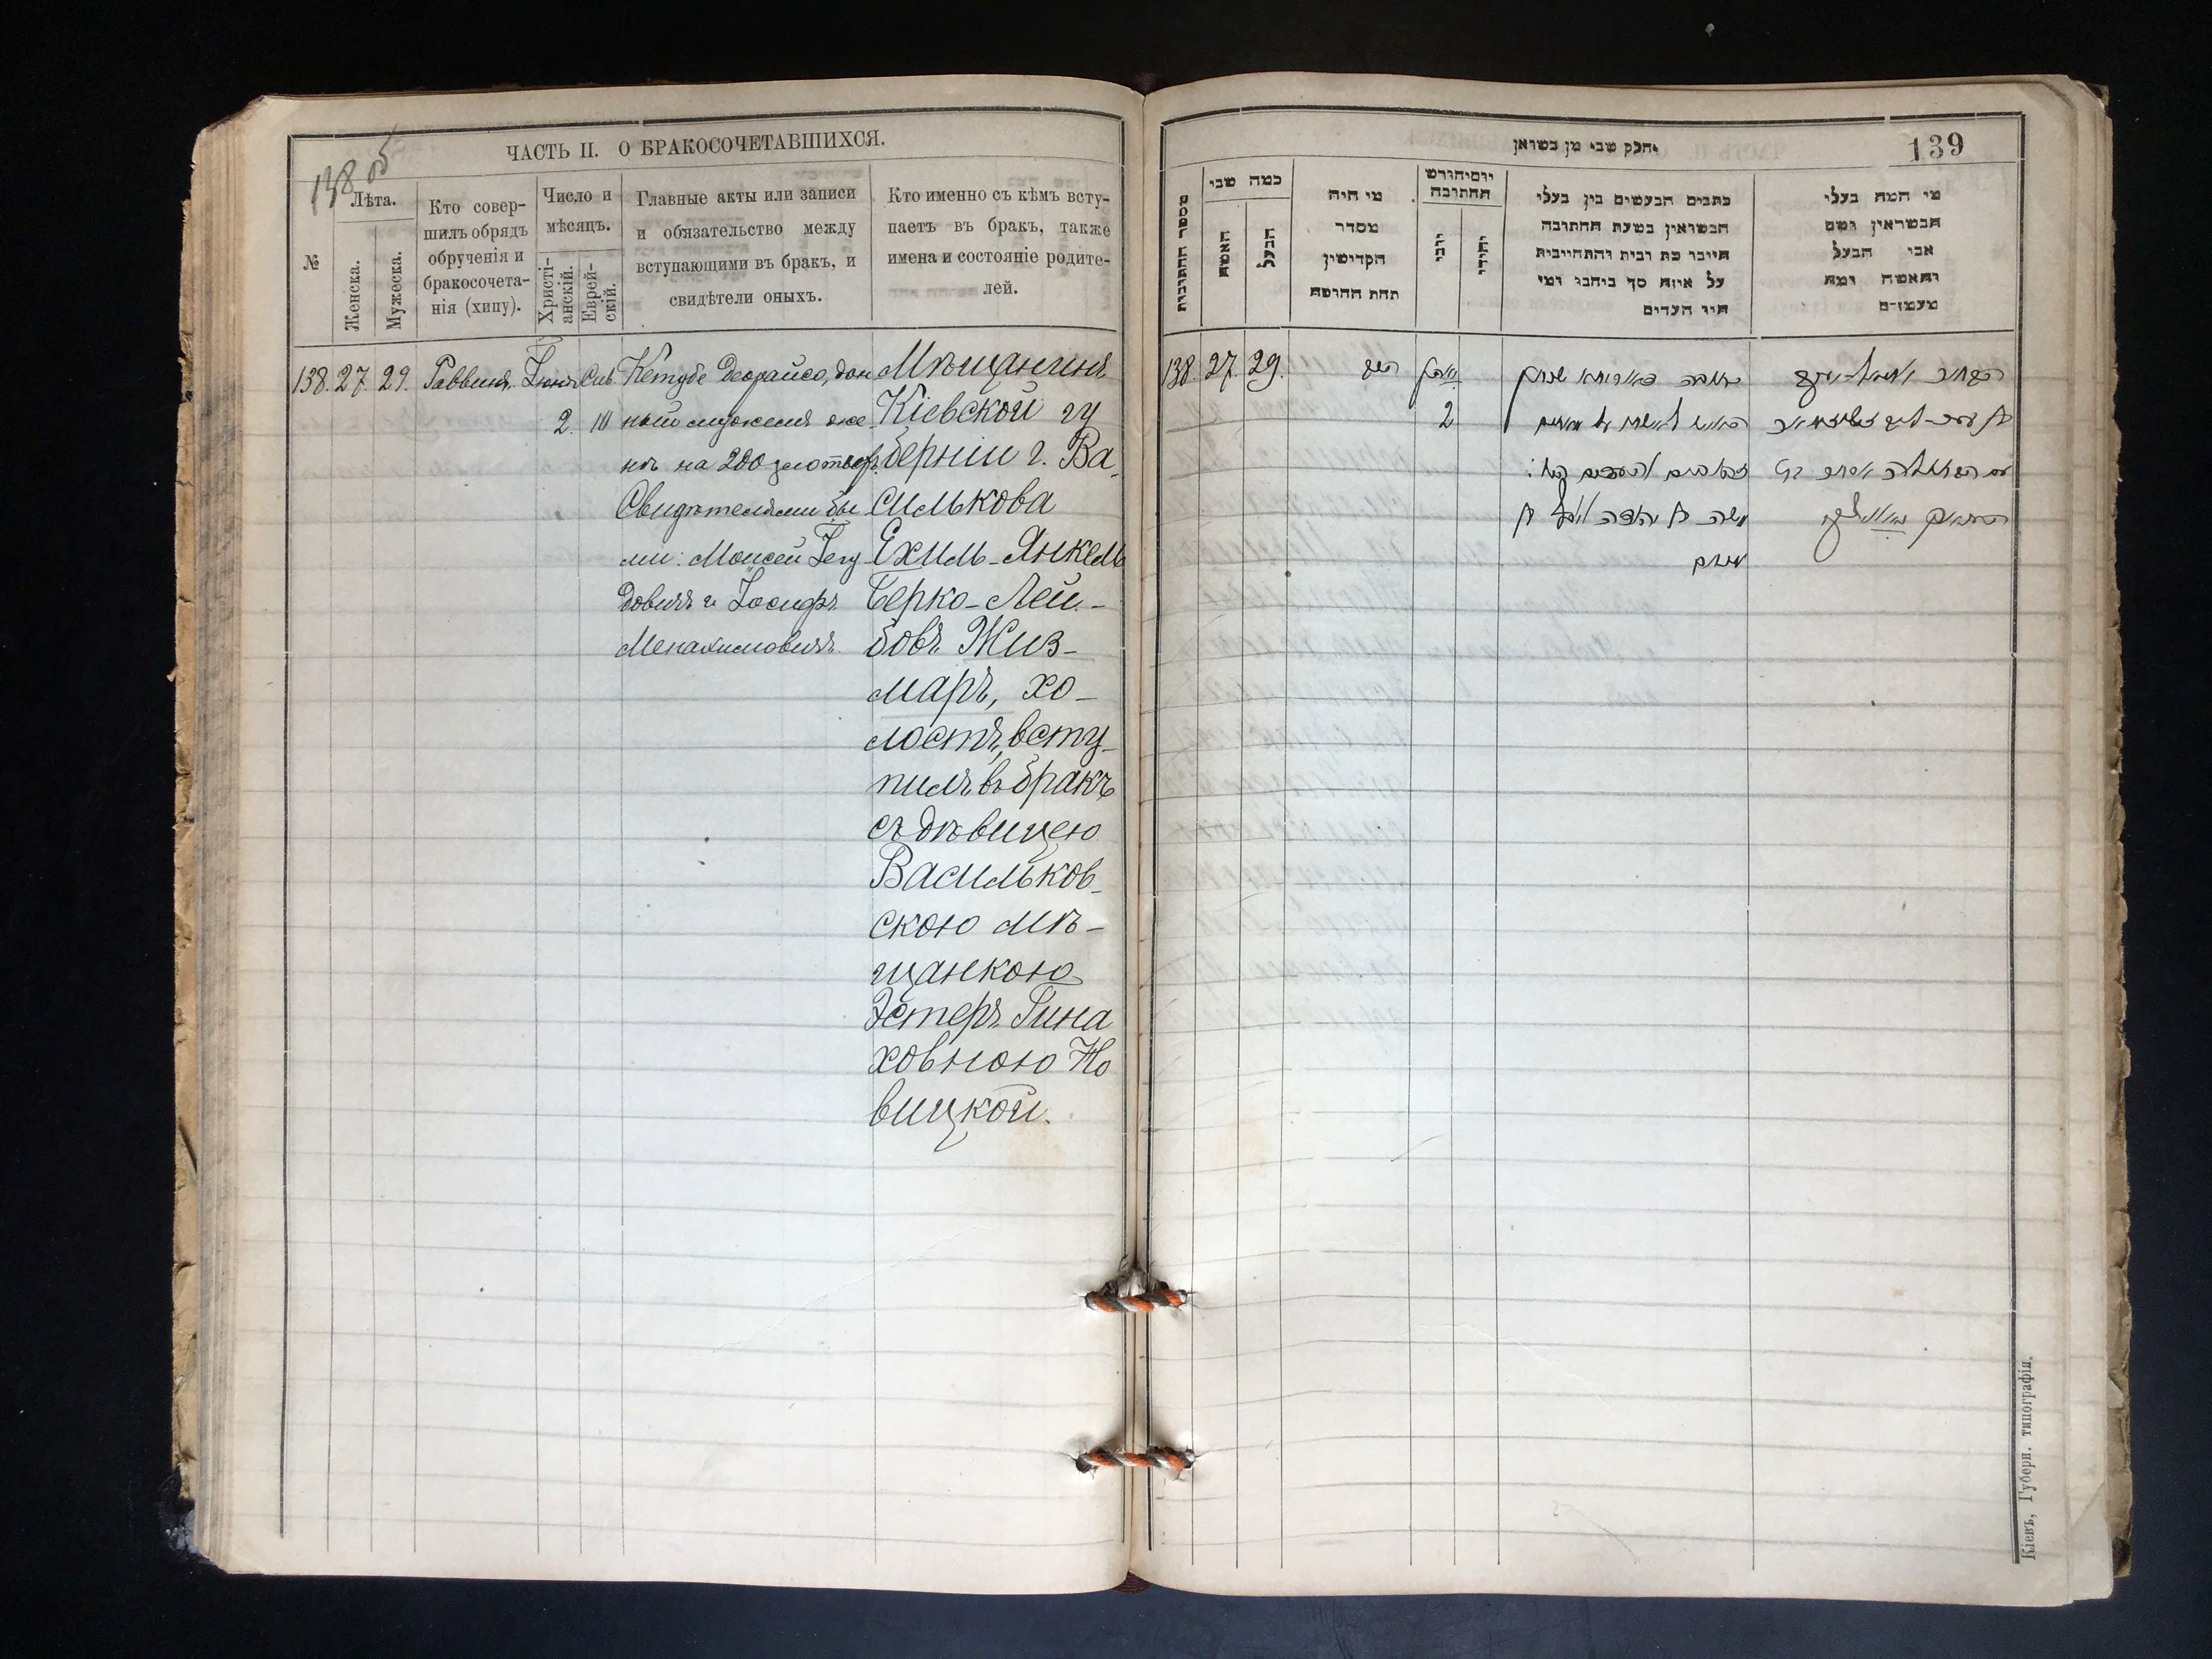 138 об
ЧАСТЬ II. О БРАКОСОЧЕТАВШИХСЯ.
№
Лѣта.
Женска.
Мужеска.
Кто совер-
шилъ обрядъ
обрученія и
бракосочета-
нія (хипу).
Число и
мѣсяцъ.
Христі-
анскій.
Еврей-
скій.
Главные акты или записи
и обязательство между
вступающими въ бракъ, и
свидѣтели оныхъ.
Кто именно съ кѣмъ всту-
паетъ въ бракъ, также
имена и состояніе родите-
лей.
138. 27. 29. Раввинъ. Іюня Сив.
2. 10
Кетубе Деорайсо, дан
ный мужемъ же-
нѣ на 200 злотыхъ.
Свидѣтелями бы
ли: Моисей Іегу
довичъ и Іосифъ
Менахимовичъ.
Мѣщанинъ
Кіевской гу
берніи г. Ва
силькова
Ехиль-Янкель
Берко-Лей-
бовъ Жиз-
маръ, хо-
лостъ, всту-
пилъ въ бракъ
съ дѣвицею
Васильков-
скою мѣ-
щанкою
Эстеръ Пина
ховною Но
вицкой.
139
וחלק שבי מן בשואן
מספר החתובות
כמה שבי
האשה
הבעל
מי היה
מסדר
הקדישין
תחת החופה
יום יחודש
החתובה
יהודי
כתבים הבעשים בין בעלי
הבשואין בשעת החתובה
חייבו כת רבית והתחייבית
על איזה סך ביחבו ומי
היו העדים
מי המה בעלי
הבשואין ושם
אבי הבעל
והאשה ומה
מעמדם
138. 27. 29.
2
משה בן יהודה ויוסף בן
מנחם
Кіевъ, Губерн. типографія.